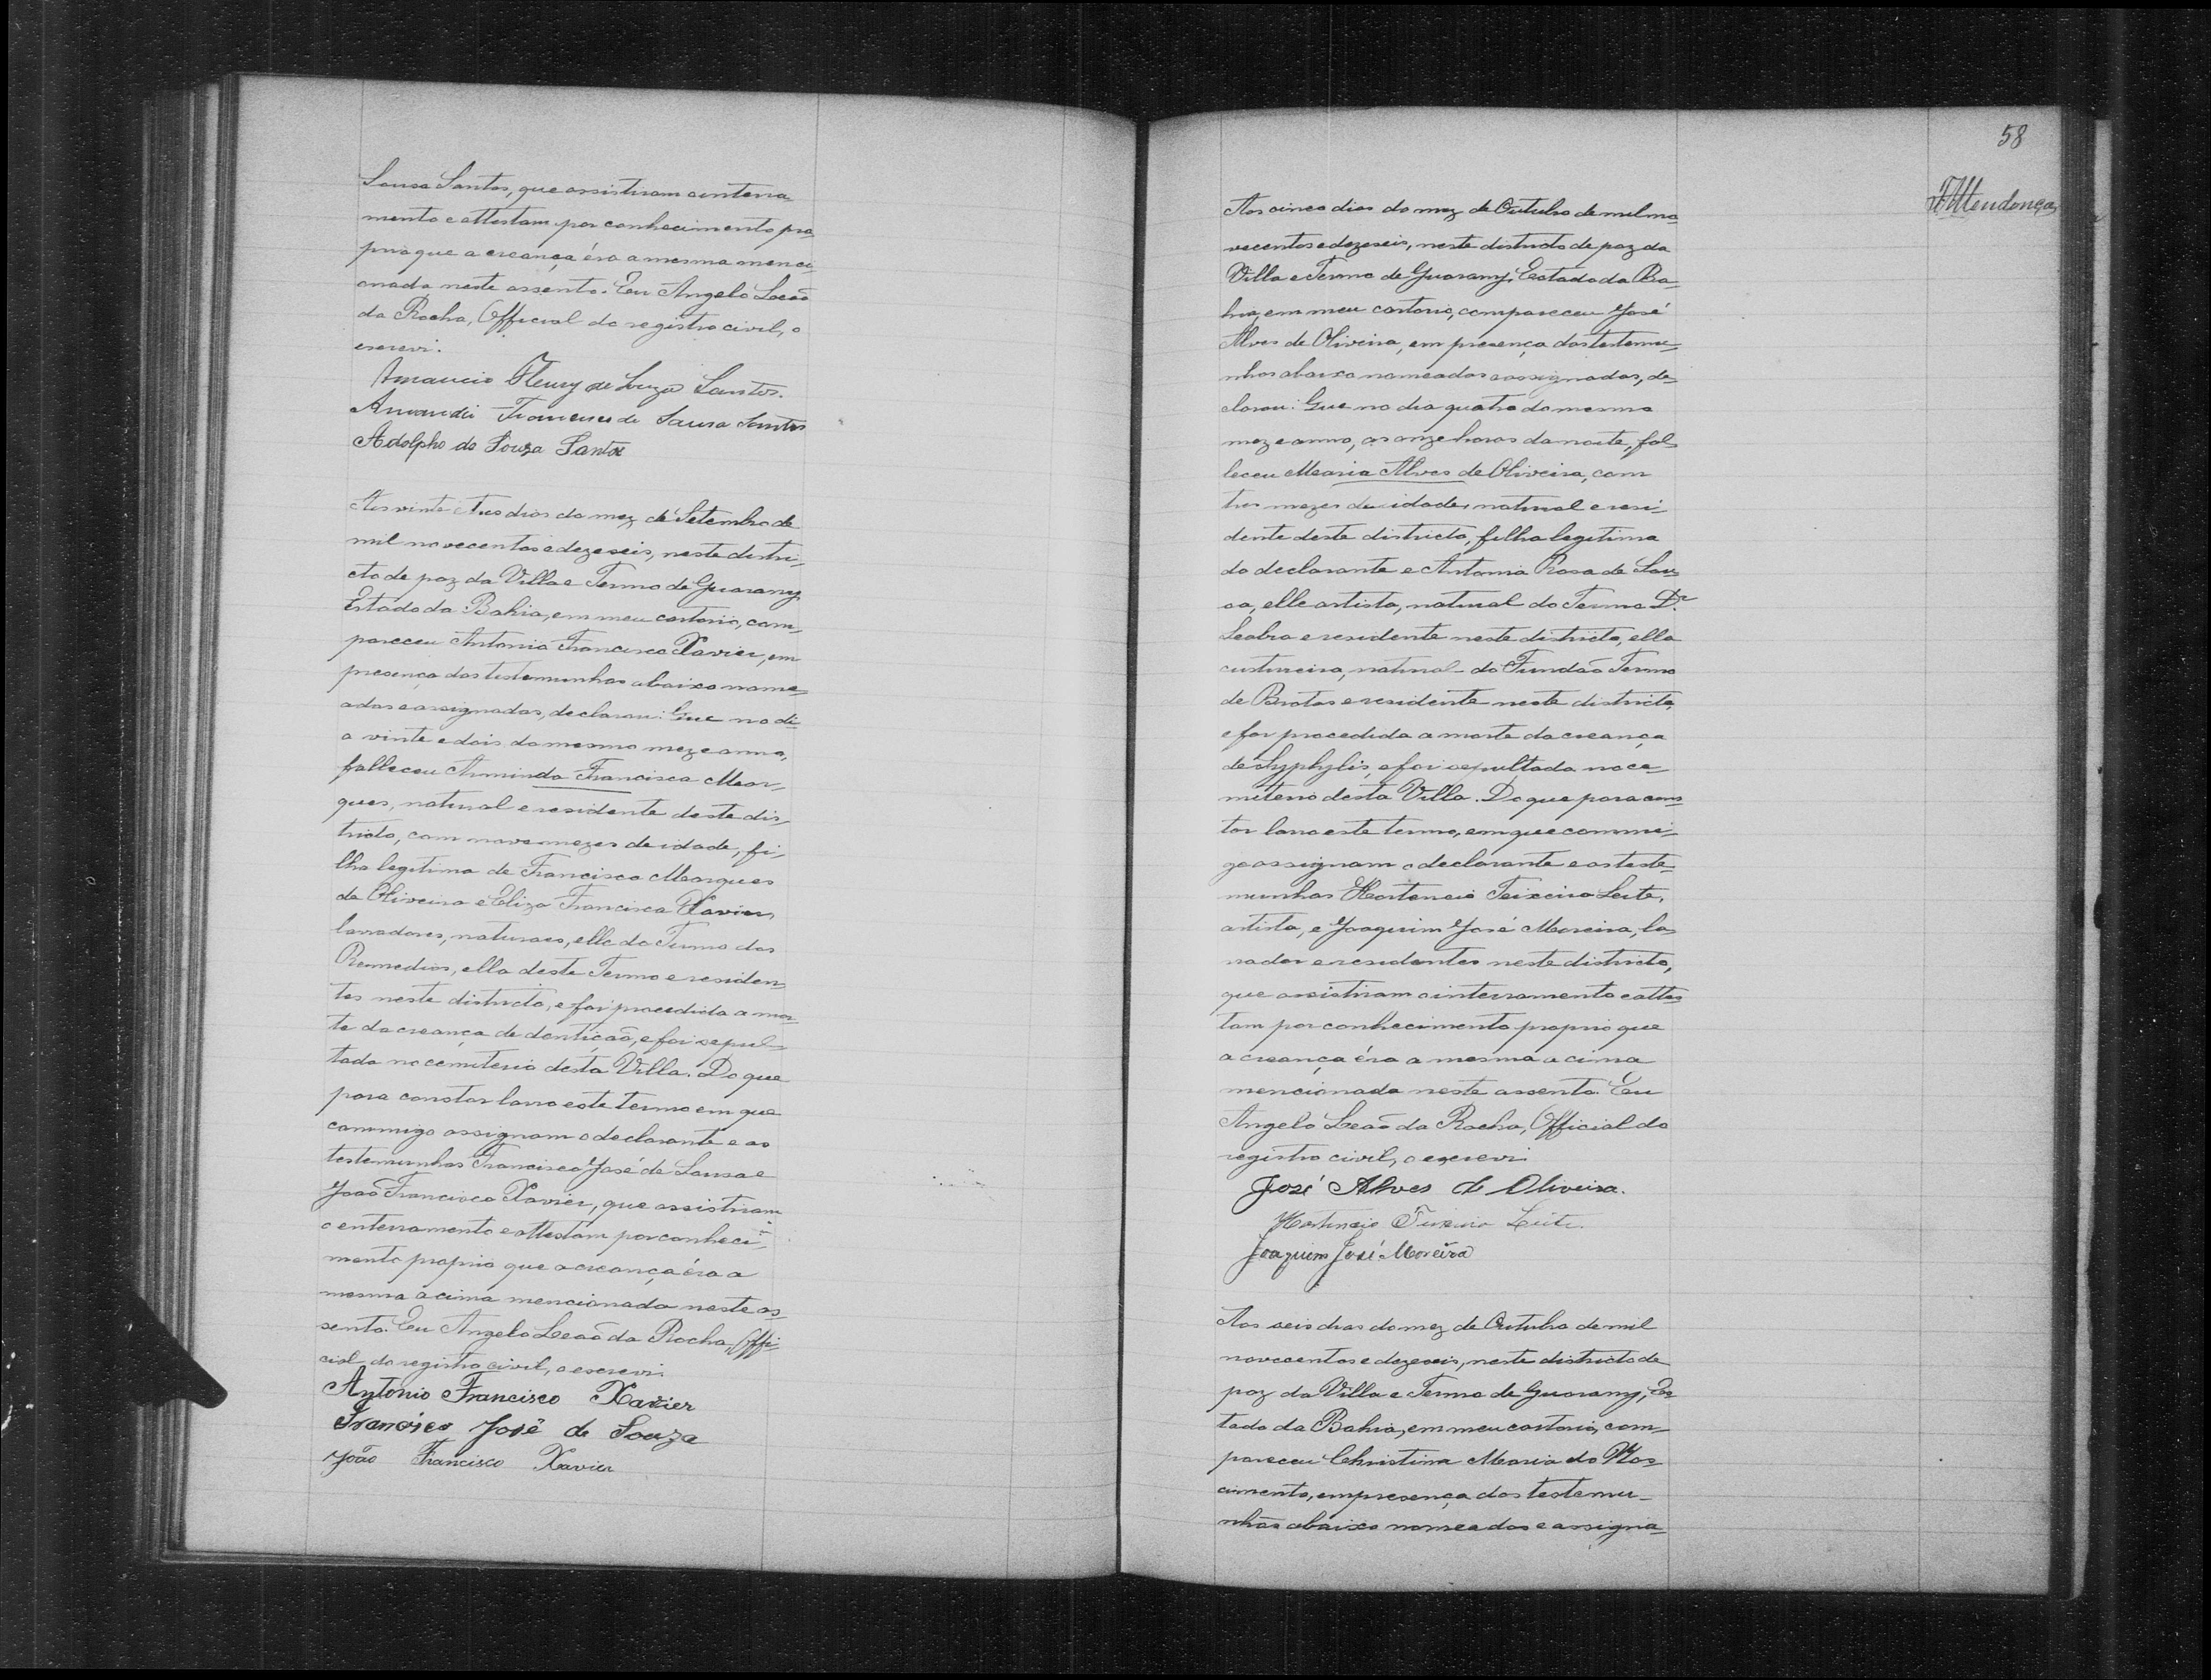 Sousa Santos, que assistiram o enterra-
mento e attestam por conhecimento pro-
prio que a creança éra a mesma menci-
onada neste assento. Eu Angelo Leaõ
da Rocha, Official do registro civil, o
escrevi.
Amancio Fleury de Souza Santos.
Francisco de Sousa Santos
Adolpho de Souza Santos
Aos vinte e tres dias do mez de Setembro de
mil novecentos e dezeseis, neste distri-
cto de paz da Villa e Termo de Guarany,
Estado da Bahia, em meu cartorio, com-
pareceu Antonio Francisco Xavier, em
presença das testemunhas abaixo nome-
adas e assignadas, declarou: Que no di-
a vinte e dois do mesmo mez e anno,
falleceu Arminda Francisca Mar-
ques, natural e residente deste dis-
tricto, com nove mezes de idade, fi-
lha legitima de Francisco Marques
de Oliveira e Eliza Francisca Xavier,
lavradores, naturaes, elle do Termo dos
Remedios, ella deste Termo e residen-
tes neste districto, e foi procedida a mor-
te da creança de dentiçaõ, e foi sepul-
tada no cemiterio desta Villa. Do que
para constar lavro este termo em que
commigo assignam o declarante e as
testemunhas Francisco José de Sousa e
Joaõ Francisco Xavier, que assistiram
o enterramento e attestam por conheci-
mento proprio que a creança éra a
mesma acima mencionada neste as-
sento. Eu Angelo Leaõ da Rocha, Offi-
cial do registro civil, o escrevi.
Antonio Francisco Xavier
Francisco José de Souza
João Francisco Xavier
58
Mendonça
Aos cinco dias do mez de Outubro de mil no-
vecentos e dezeseis, neste districto de paz da
Villa e Termo de Guarany, Estado da Ba-
hia, em meu cartorio, compareceu José
Alves de Oliveira, em presença das testemu-
nhas abaixo nomeadas e assignadas, de-
clarou: Que no dia quatro do mesmo
mez e anno, as onze horas da noite, fal-
leceu Maria Alves de Oliveira, com
tres mezes de idade, natural e resi-
dente deste districto, filha legitima
do declarante e Antonia Rosa de Sou-
sa, elle artista, natural do Termo Dr.
Seabra e residente neste districto, ella
custureira, natural do Fundaõ Termo
de Brotas e residente neste districto,
e foi procedida a morte da creança
de Syphylis, e foi sepultada no ce-
miterio desta Villa. Do que para cons-
tar lavro este termo, em que commi-
go assignam o declarante e as teste-
munhas Hortencio Teixeira Leite,
artista, e Joaquim José Moreira, la-
vrador e residentes neste districto,
que assistiram o interramento e attes-
tam por conhecimento proprio que
a creança éra a mesma acima
mencionada neste assento. Eu
Angelo Leaõ da Rocha, Official do
registro civil, o escrevi.
José Alves de Oliveira.
Hortencio Teixeira Leite.
Joaquim José Moreira
Aos seis dias do mez de Outubro de mil
novecentos e dezeseis, neste districto de
paz da Villa e Termo de Guarany, Es-
tado da Bahia, em meu cartorio, com-
pareceu Christina Maria do Nas-
cimento, em presença das testemu-
nhas abaixo nomeadas e assigna-